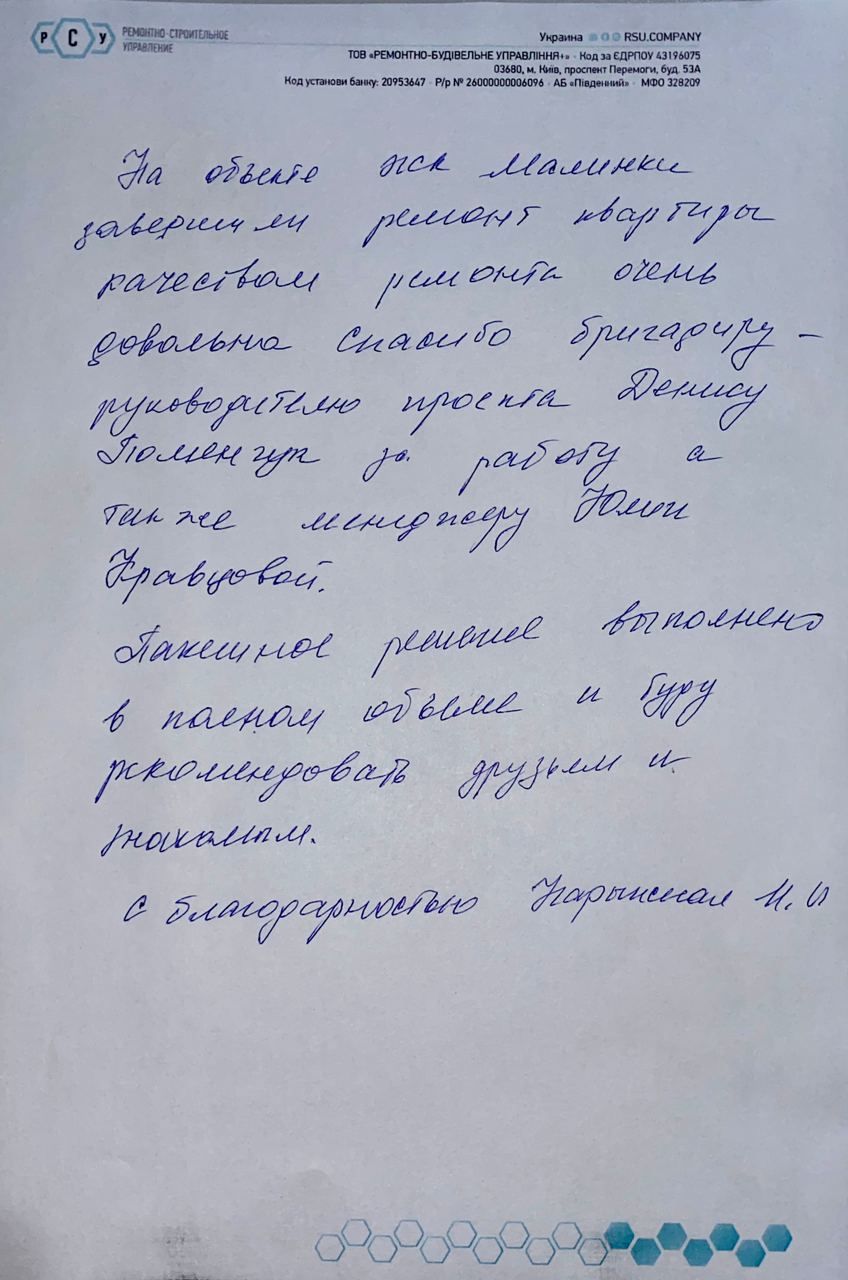 Р С У
РЕМОНТНО-СТРОИТЕЛЬНОЕ
УПРАВЛЕНИЕ
Украина RSU.COMPANY
ТОВ «РЕМОНТНО-БУДІВЕЛЬНЕ УПРАВЛІННЯ+» · Код за ЄДРПОУ 43196075
03680, м. Київ, проспект Перемоги, буд. 53А
Код установи банку: 20953647 · Р/р № 26000000006096 · АБ «Південний» · МФО 328209
На объекте жк Малинки
завершили ремонт квартиры
качеством ремонта очень
довольна спасибо бригадиру –
руководителю проекта Денису
за работу а
также менеджеру Юлии
Кравцовой.
Пакетное решение выполнено
в полном объеме и буду
рекомендовать друзьям и
знакомым.
С благодарностью И. И